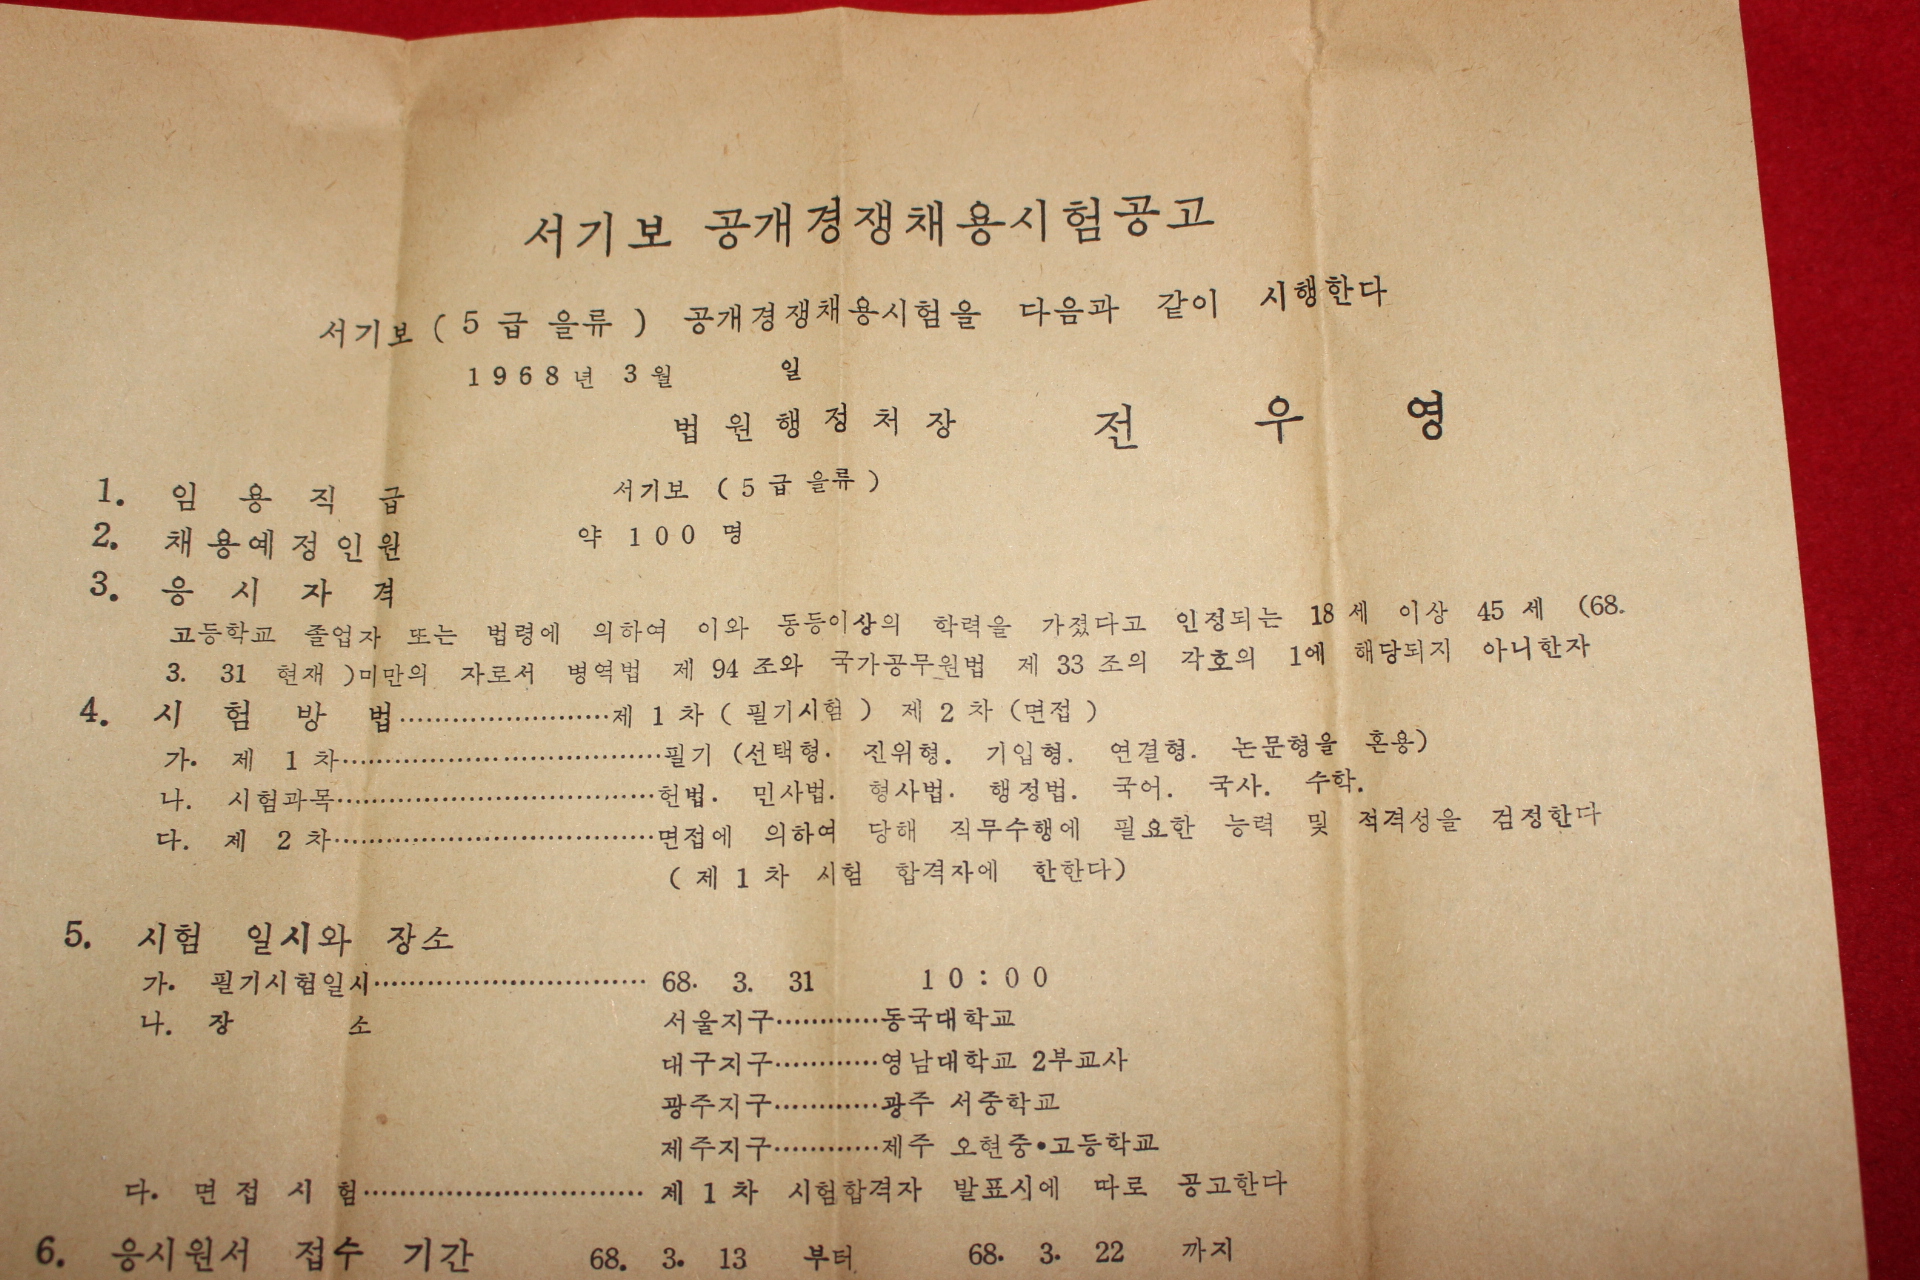 서기보 공개경쟁채용시험공고
서기보 ( 5 급 을류 ) 공개경쟁채용시험을 다음과 같이 시행한다
1968년 3월 일
법원행정처장 전우영
1. 임용직급 서기보 ( 5 급 을류 )
2. 채용예정인원 약 100 명
3. 응시자격
고등학교 졸업자 또는 법령에 의하여 이와 동등이상의 학력을 가졌다고 인정되는 18 세 이상 45 세 (68.
3. 31 현재 )미만의 자로서 병역법 제 94 조와 국가공무원법 제 33 조의 각호의 1에 해당되지 아니한자
4. 시험방법························제 1 차 ( 필기시험 ) 제 2 차 (면접 )
가. 제 1 차····································필기 (선택형. 진위형. 기입형. 연결형. 논문형을 혼용)
나. 시험과목····································헌법. 민사법. 형사법. 행정법. 국어. 국사. 수학.
다. 제 2 차····································면접에 의하여 당해 직무수행에 필요한 능력 및 적격성을 검정한다
( 제 1 차 시험 합격자에 한한다)
5. 시험 일시와 장소
가. 필기시험일시······························· 68. 3. 31 10:00
나. 장 소 서울지구············동국대학교
대구지구············영남대학교 2부교사
광주지구············광주 서중학교
제주지구············제주 오현중•고등학교
다. 면접시험································ 제 1 차 시험합격자 발표시에 따로 공고한다
6. 응시원서 접수 기간 68. 3. 13 부터 68. 3. 22 까지